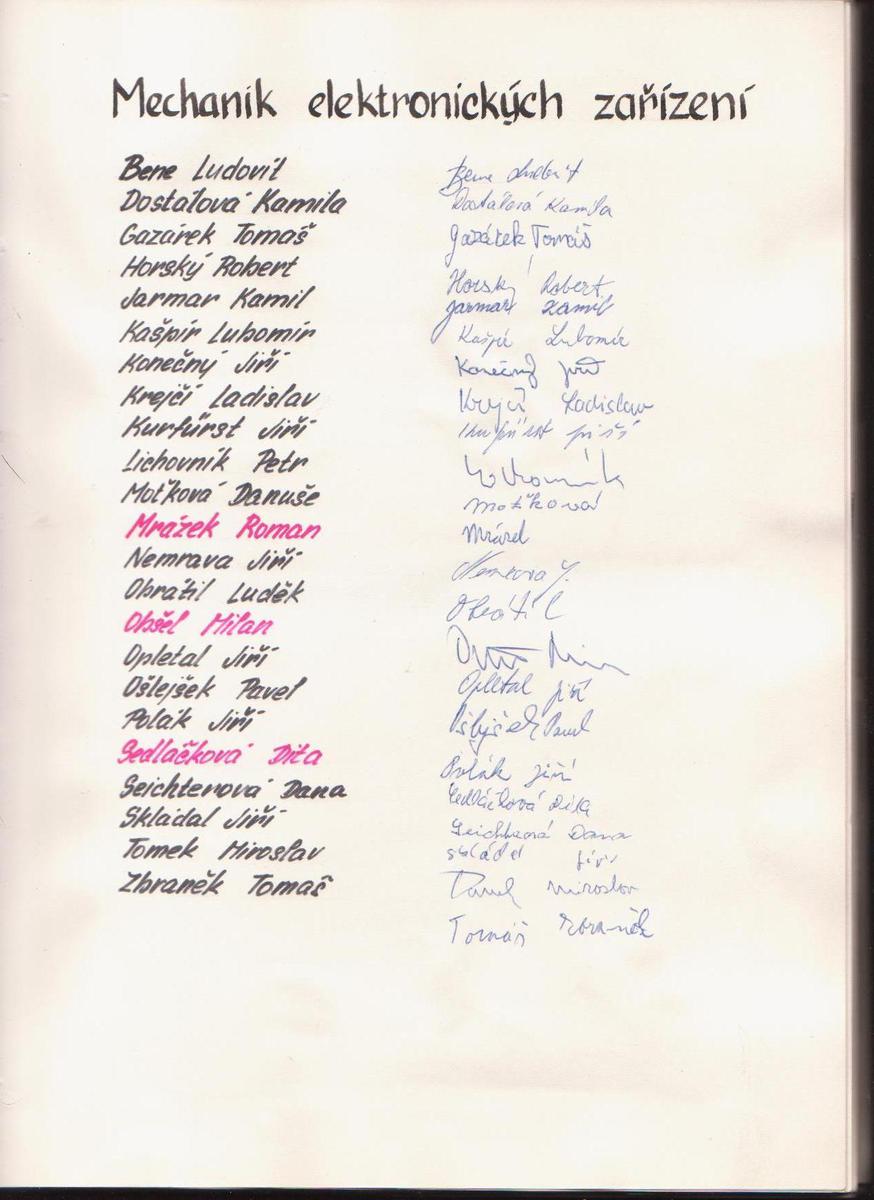 Mechanik elektronických zařízení
Bene Ludovít Bene Ludovít
Dostálová Kamila Dostálová Kamila
Gazárek Tomáš Gazárek Tomáš
Horský Robert Horský Robert
Jarmar Kamil Jarmar Kamil
Kašpír Lubomír Kašpír Lubomír
Konečný Jiří Konečný Jiří
Krejčí Ladislav Krejčí Ladislav
Kurfürst Jiří Kurfürst Jiří
Lichovník Petr
Moťková Danuše Moťková
Mrázek Roman Mrázek
Nemrava Jiří Nemrava J.
Obrátil Luděk Obrátil
Obšel Milan
Opletal Jiří Opletal Jiří
Ošlejšek Pavel Ošlejšek Pavel
Polák Jiří Polák Jiří
Sedláčková Dita Sedláčková Dita
Seichterová Dana Seichterová Dana
Skládal Jiří Skládal Jiří
Tomek Miroslav Miroslav
Zbraněk Tomáš Tomáš Zbraněk